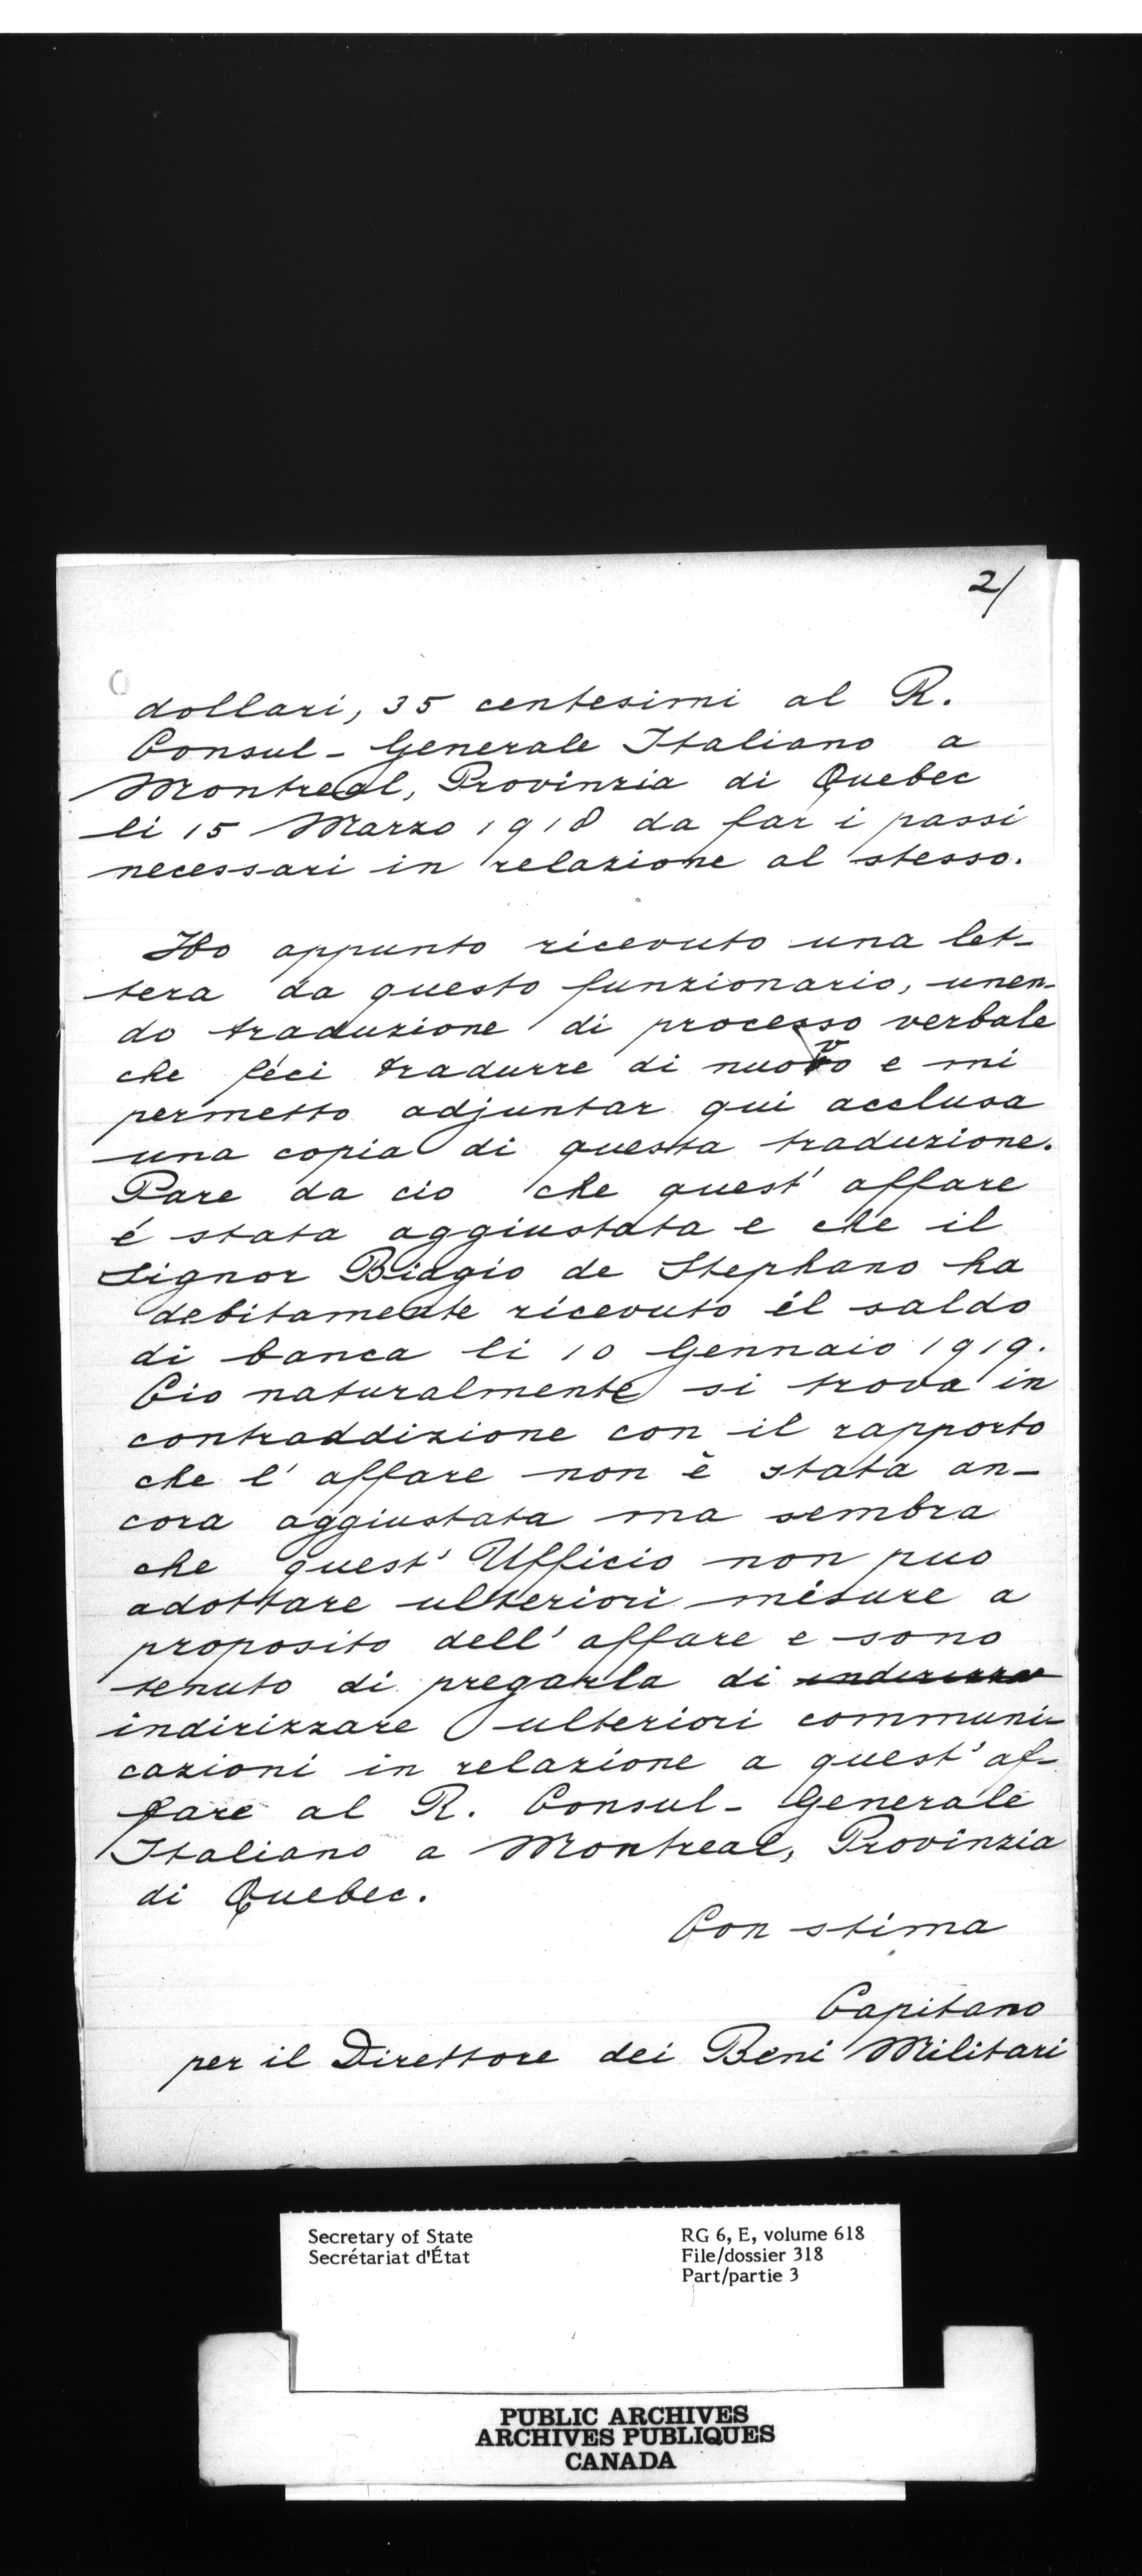 2/
dollari, 35 centesimi al R.
Consul-Generale Italiano a
Montreal, Provinzia di Quebec
li 15 Marzo 1918 da far i passi
necessari in relazione al stesso.
Ho appunto ricevuto una let-
tera da questo funzionario, unen-
do traduzione di processo verbale
che féci tradurre di nuovo e mi
permetto adjuntar qui acclusa
una copia di questa traduzione.
Pare da cio che quest' affare
é stata aggiustata e che il
Signor Biagio de Stephano ha
debitamente ricevuto il saldo
di banca li 10 Gennaio 1919.
Cio naturalmente si trova in
contraddizione con il rapporto
che l' affare non è stata an-
cora aggiustata ma sembra
che quest' Ufficio non puo
adottare ulteriori misure a
proposito dell' affare e sono
tenuto di pregarla di
indirizzare ulteriori communi-
cazioni in relazione a quest' af-
fare al R. Consul-Generale
Italiano a Montreal, Provinzia
di Quebec.
Con stima
Capitano
per il Direttore dei Beni Militari
Secretary of State
Secrétariat d'État
RG 6, E, volume 618
File/dossier 318
Part/partie 3
PUBLIC ARCHIVES
ARCHIVES PUBLIQUES
CANADA